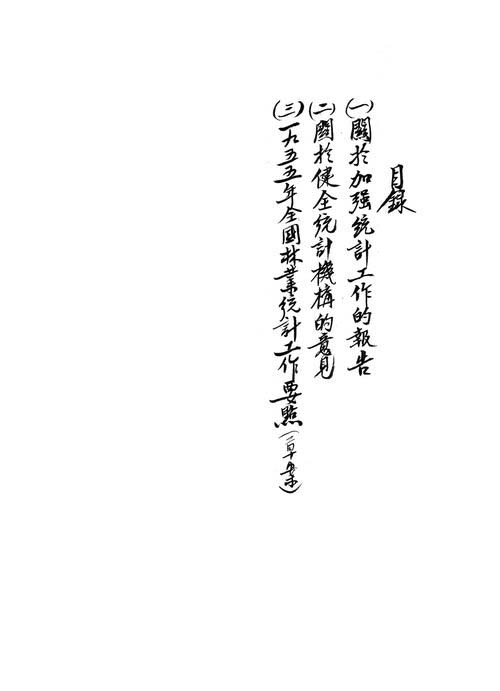 目录
(一)關於加强統計工作的報告
(二)關於健全統計機構的意見
(三)一九五五年全國林業統計工作要點(草案)